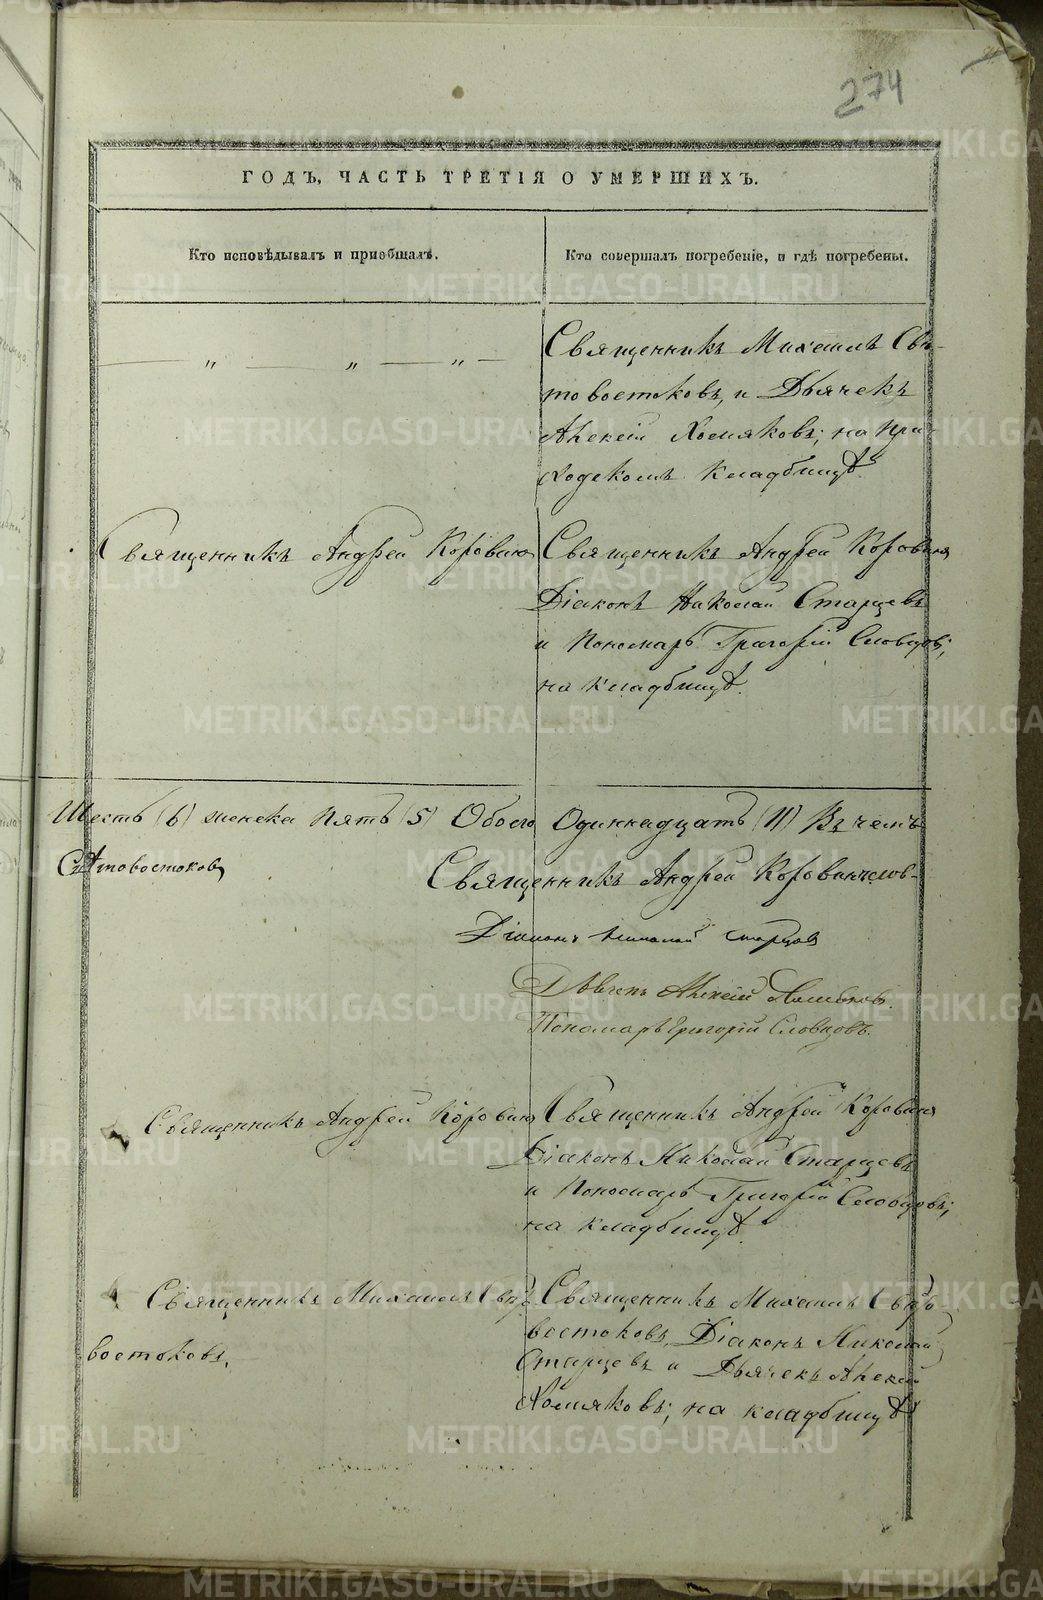 274
ГОДЪ, ЧАСТЬ ТРЕТІЯ О УМЕРШИХЪ.
Кто исповѣдывалъ и пріобщалъ.
Кто совершалъ погребеніе, и гдѣ погребены.
— „ — „ — „ —
Священникъ Михаилъ Свѣ-
товостоковъ, и Дьячекъ
Алексій Хомяковъ; на При-
ходскомъ кладбищѣ.
Священникъ Андрей Коровинъ
Священникъ Андрей Коровинъ
Діаконъ Николай Старцевъ
и Пономарь Григорій Словцовъ;
на кладбищѣ.
Шесть (6) женска Пять (5) Обоего Одиннадцать (11) Въ чемъ
Свѣтовостоковъ
Священникъ Андрей Коровинъ
Діаконъ Николай Старцов
Дьячекъ Алексій Хомяковъ.
Пономарь Григорій Словцовъ.
Священникъ Андрей Коровинъ
Священникъ Андрей Коровинъ
Діаконъ Николай Старцевъ
и Пономарь Григорій Словцовъ;
на кладбищѣ.
Священникъ Михаилъ Свѣто
востоковъ.
Священникъ Михаилъ Свѣто
востоковъ, Діаконъ Николай
Старцевъ и Дьячекъ Алексій
Хомяковъ; на кладбищѣ
METRIKI.GASO-URAL.RU